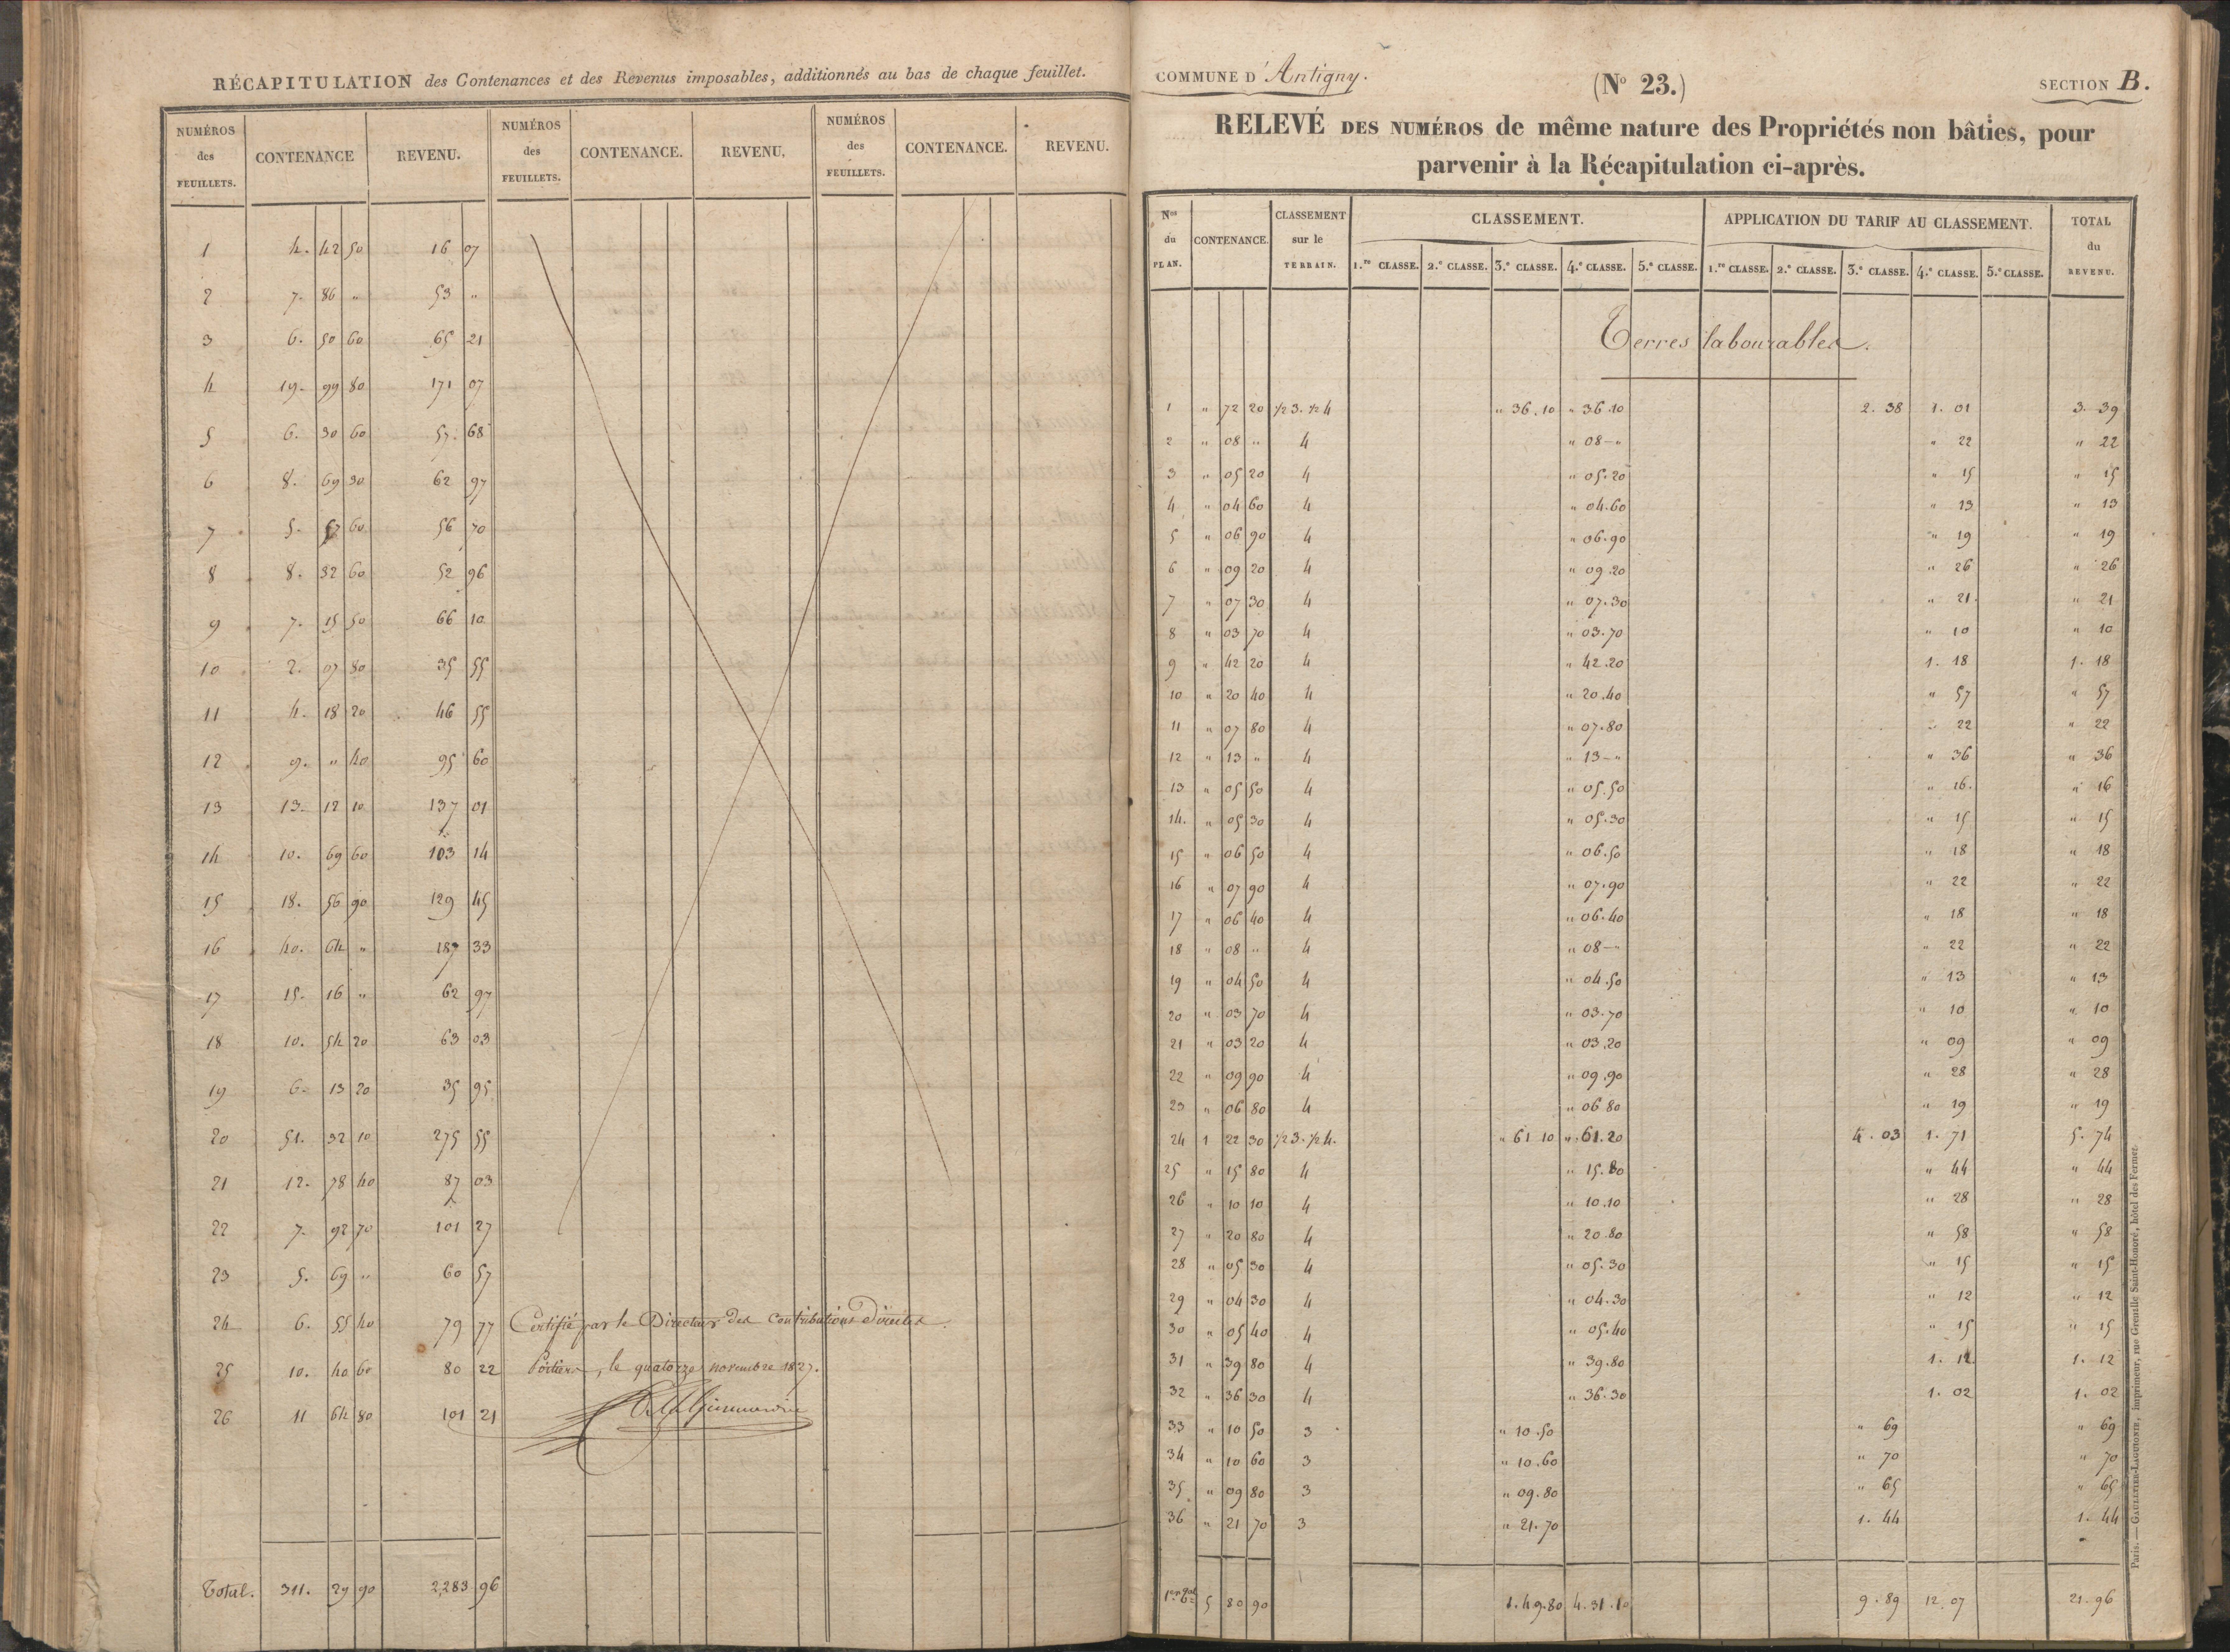 RÉCAPITULATION des Contenances et des Revenus imposables, additionnés au bas de chaque feuillet.
NUMÉROS des FEUILLETS. CONTENANCE REVENU. NUMÉROS des FEUILLETS. CONTENANCE. REVENU. NUMÉROS des FEUILLETS. CONTENANCE. REVENU.
1 4. 42 50 16 07
2 7. 86 " 53 "
3 6. 50 60 65 21
4 19. 99 80 171 07
5 6. 30 60 57. 68
6 8. 69 30 62 97
7 5. 67 60 56 70
8 8. 32 60 52 96
9 7. 15 50 66 10
10 2. 07 80 35 55
11 4. 18 20 46 55
12 9. " 40 95 60
13 13. 12 10 137 01
14 10. 69 60 103 14
15 18. 56 90 129 45
16 40. 64 " 187 33
17 15. 16 " 62 97
18 10. 54 20 63 03
19 6. 13 20 35 95
20 51. 32 10 275 55
21 12. 78 40 87 03
22 7. 92 70 101 27
23 5. 69 " 60 57
24 6. 55 40 79 77 Certifié par le Directeur des Contributions Directes.
25 10. 40 60 80 22 Poitiers, le quatorze novembre 1827.
26 11 64 80 101 21
Total. 311. 29 90 2,283 96
COMMUNE D'Antigny. (No 23.) SECTION B.
RELEVÉ DES NUMÉROS de même nature des Propriétés non bâties, pour
parvenir à la Récapitulation ci-après.
Nos du PLAN. CONTENANCE. CLASSEMENT sur le TERRAIN. CLASSEMENT. APPLICATION DU TARIF AU CLASSEMENT. TOTAL du REVENU.
1.re CLASSE. 2.e CLASSE. 3.e CLASSE. 4.e CLASSE. 5.e CLASSE. 1.re CLASSE. 2.e CLASSE. 3.e CLASSE. 4.e CLASSE. 5.e CLASSE.
Terres labourables.
1 " 72 20 1/2 3. 1/2 4 " 36.10 " 36.10 2. 38 1. 01 3. 39
2 " 08 " 4 " 08-" " 22 " 22
3 " 05 20 4 " 05.20 " 15 " 15
4 " 04 60 4 " 04.60 " 13 " 13
5 " 06 90 4 " 06.90 " 19 " 19
6 " 09 20 4 " 09.20 " 26 " 26
7 " 07 30 4 " 07.30 " 21 " 21
8 " 03 70 4 " 03.70 " 10 " 10
9 " 42 20 4 " 42.20 1. 18 1. 18
10 " 20 40 4 " 20.40 " 57 " 57
11 " 07 80 4 " 07.80 " 22 " 22
12 " 13 " 4 " 13-" " 36 " 36
13 " 05 50 4 " 05.50 " 16. " 16
14. " 05 30 4 " 05.30 " 15 " 15
15 " 06 50 4 " 06.50 " 18 " 18
16 " 07 90 4 " 07.90 " 22 " 22
17 " 06 40 4 " 06.40 " 18 " 18
18 " 08 " 4 " 08-" " 22 " 22
19 " 04 50 4 " 04.50 " 13 " 13
20 " 03 70 4 " 03.70 " 10 " 10
21 " 03 20 4 " 03.20 " 09 " 09
22 " 09 90 4 " 09.90 " 28 " 28
23 " 06 80 4 " 06 80 " 19 " 19
24 1 22 30 1/2 3. 1/2 4. " 61 10 " 61.20 4. 03 1. 71 5. 74
25 " 15 80 4 " 15.80 " 44 " 44
26 " 10 10 4 " 10.10 " 28 " 28
27 " 20 80 4 " 20.80 " 58 " 58
28 " 05 30 4 " 05.30 " 15 " 15
29 " 04 30 4 " 04.30 " 12 " 12
30 " 05 40 4 " 05.40 " 15 " 15
31 " 39 80 4 " 39.80 1. 12 1. 12
32 " 36 30 4 " 36.30 1. 02 1. 02
33 " 10 50 3 " 10.50 " 69 " 69
34 " 10 60 3 " 10.60 " 70 " 70
35 " 09 80 3 " 09.80 " 65 " 65
36 " 21 70 3 " 21.70 1. 44 1. 44
5 80 90 1.49.80 4.31.10 9.89 12.07 21.96
Paris. — GAULTIER-LAGUIONIE, imprimeur, rue Grenelle Saint-Honoré, hôtel des Fermes.